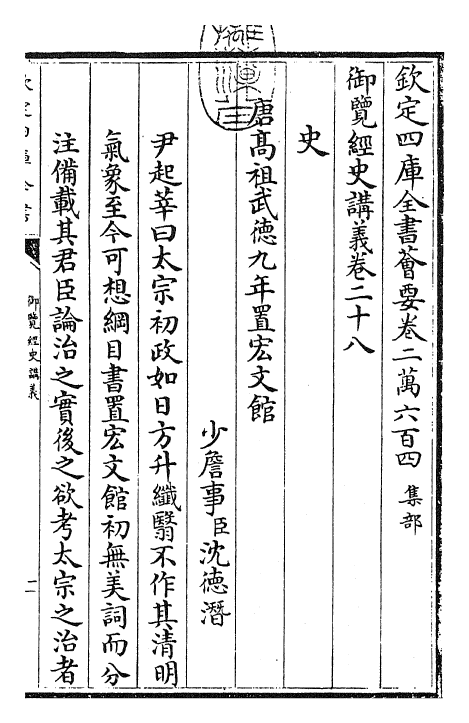 欽定四庫全書薈要卷二萬六百四 集部
御覽經史講義卷二十八
史
唐髙祖武徳九年置宏文館
少詹事臣沈徳潛
尹起莘曰太宗初政如日方升纖翳不作其清明
氣象至今可想綱目書置宏文館初無美詞而分
注備載其君臣論治之實後之欲考太宗之治者
御覽經史講義